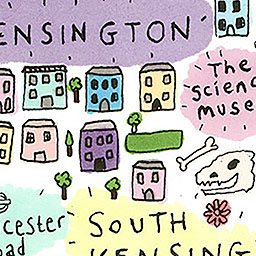 ENSINGTON
The
science
museu
cester
oad
SOUTH
KENSING